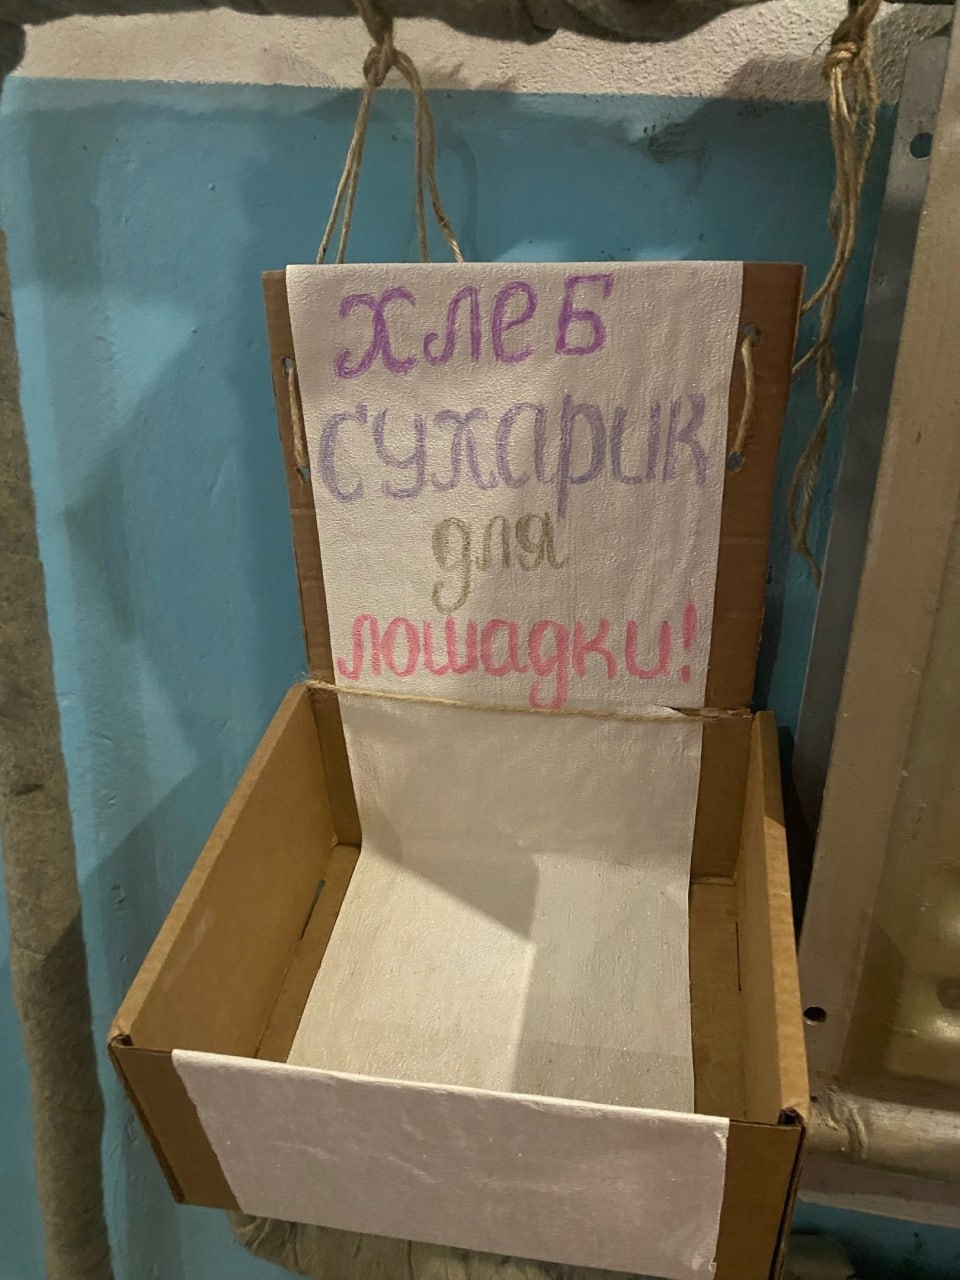 хлеб
сухарик
для
лошадки!